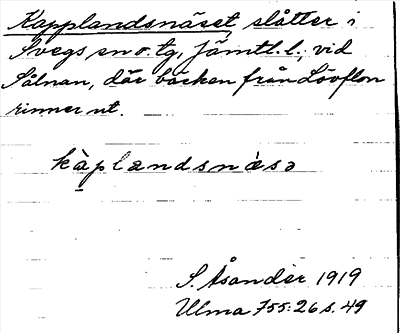 Kapplandsnäset, slåtter i
Svegs sn o. tg, Jämtl. l., vid
Sålnan, där bäcken från Lövflon
rinner ut.
kàplandsnæ̀sə
S. Åsandèr 1919
Ulma 755:26 s. 49